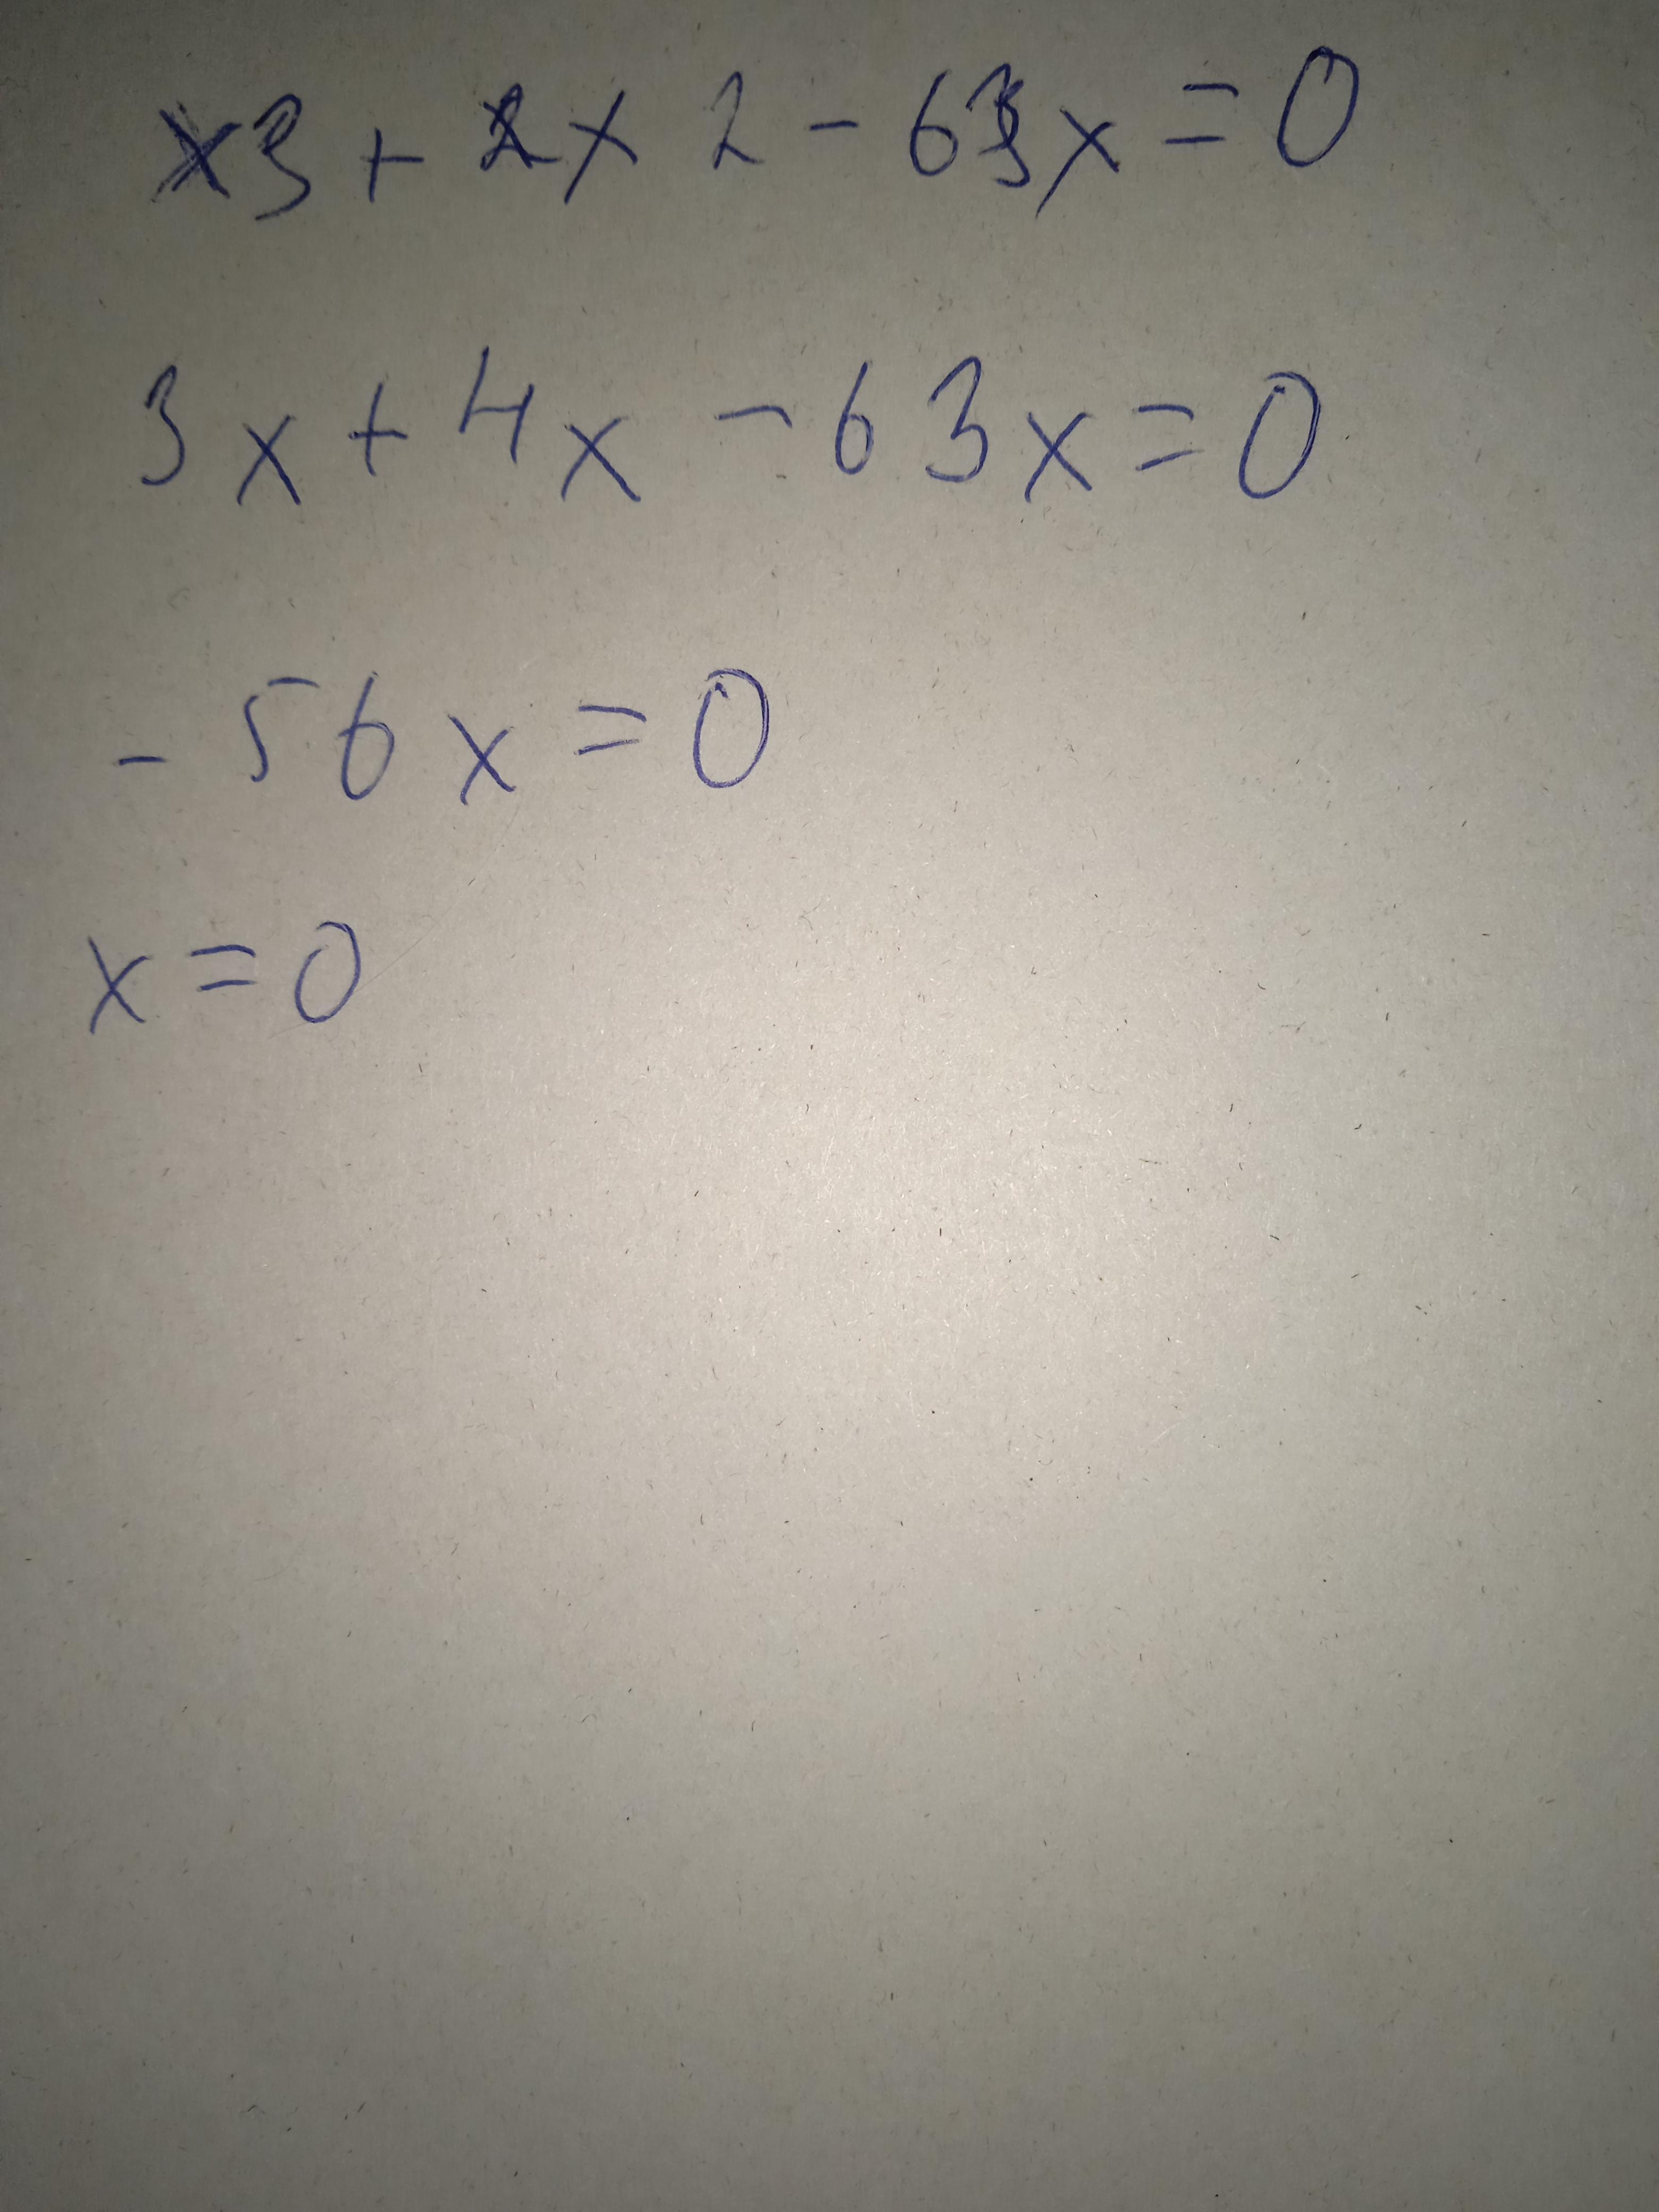 x3 + 2x2 - 63x = 0
3x + 4x - 63x = 0
- 56x = 0
x = 0